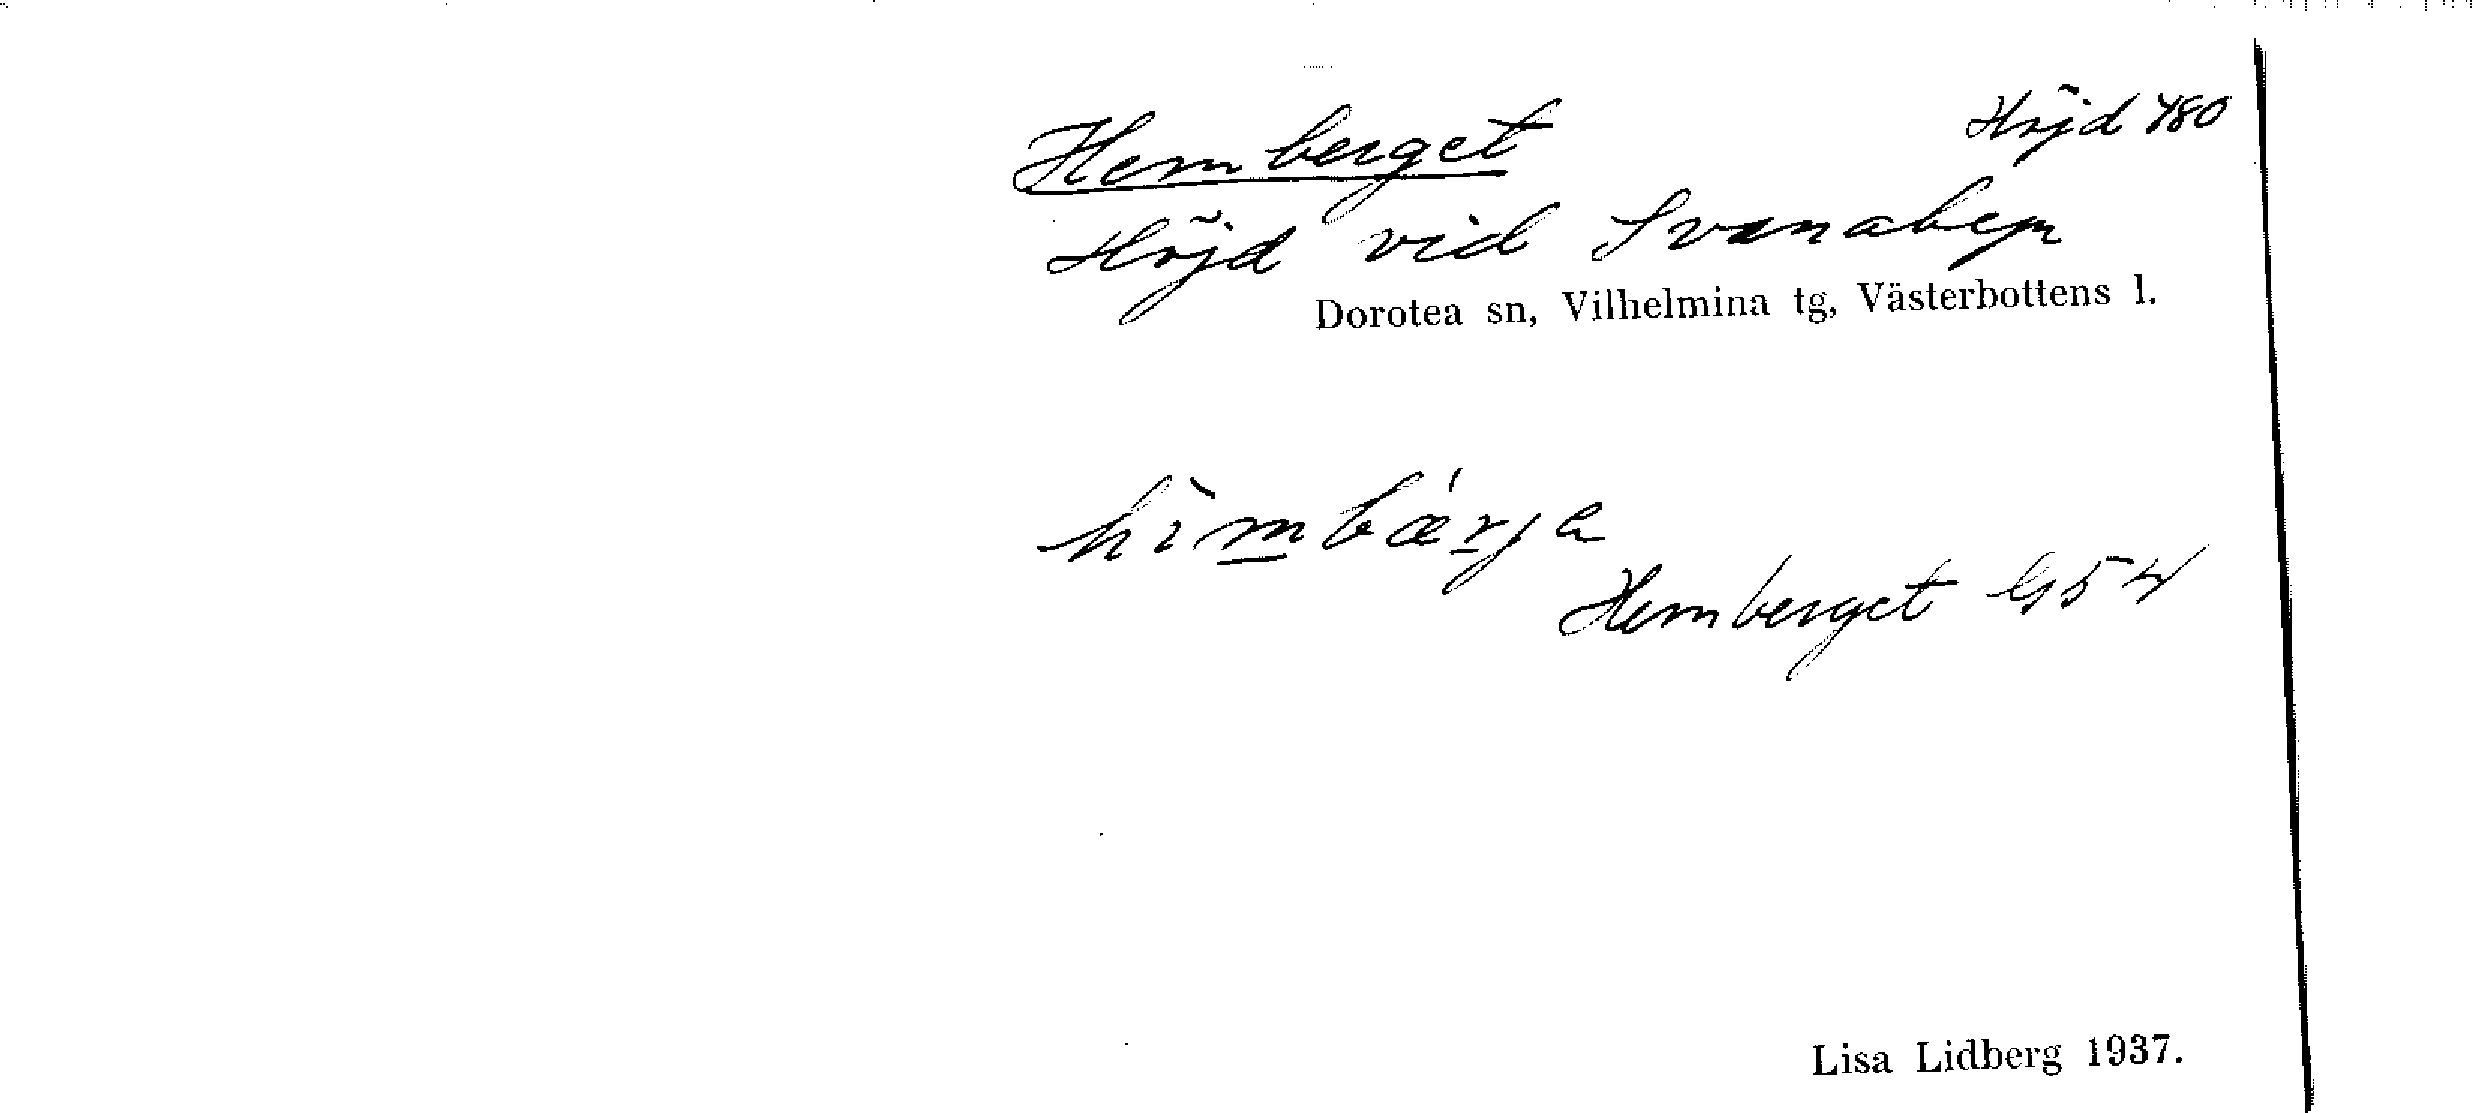 Hemberget
Höjd 480
Höjd vid Svanabyn
Dorotea sn, Vilhelmina tg, Västerbottens l.
hìmbǽrja
Hemberget G5 4
Lisa Lidberg 1937.